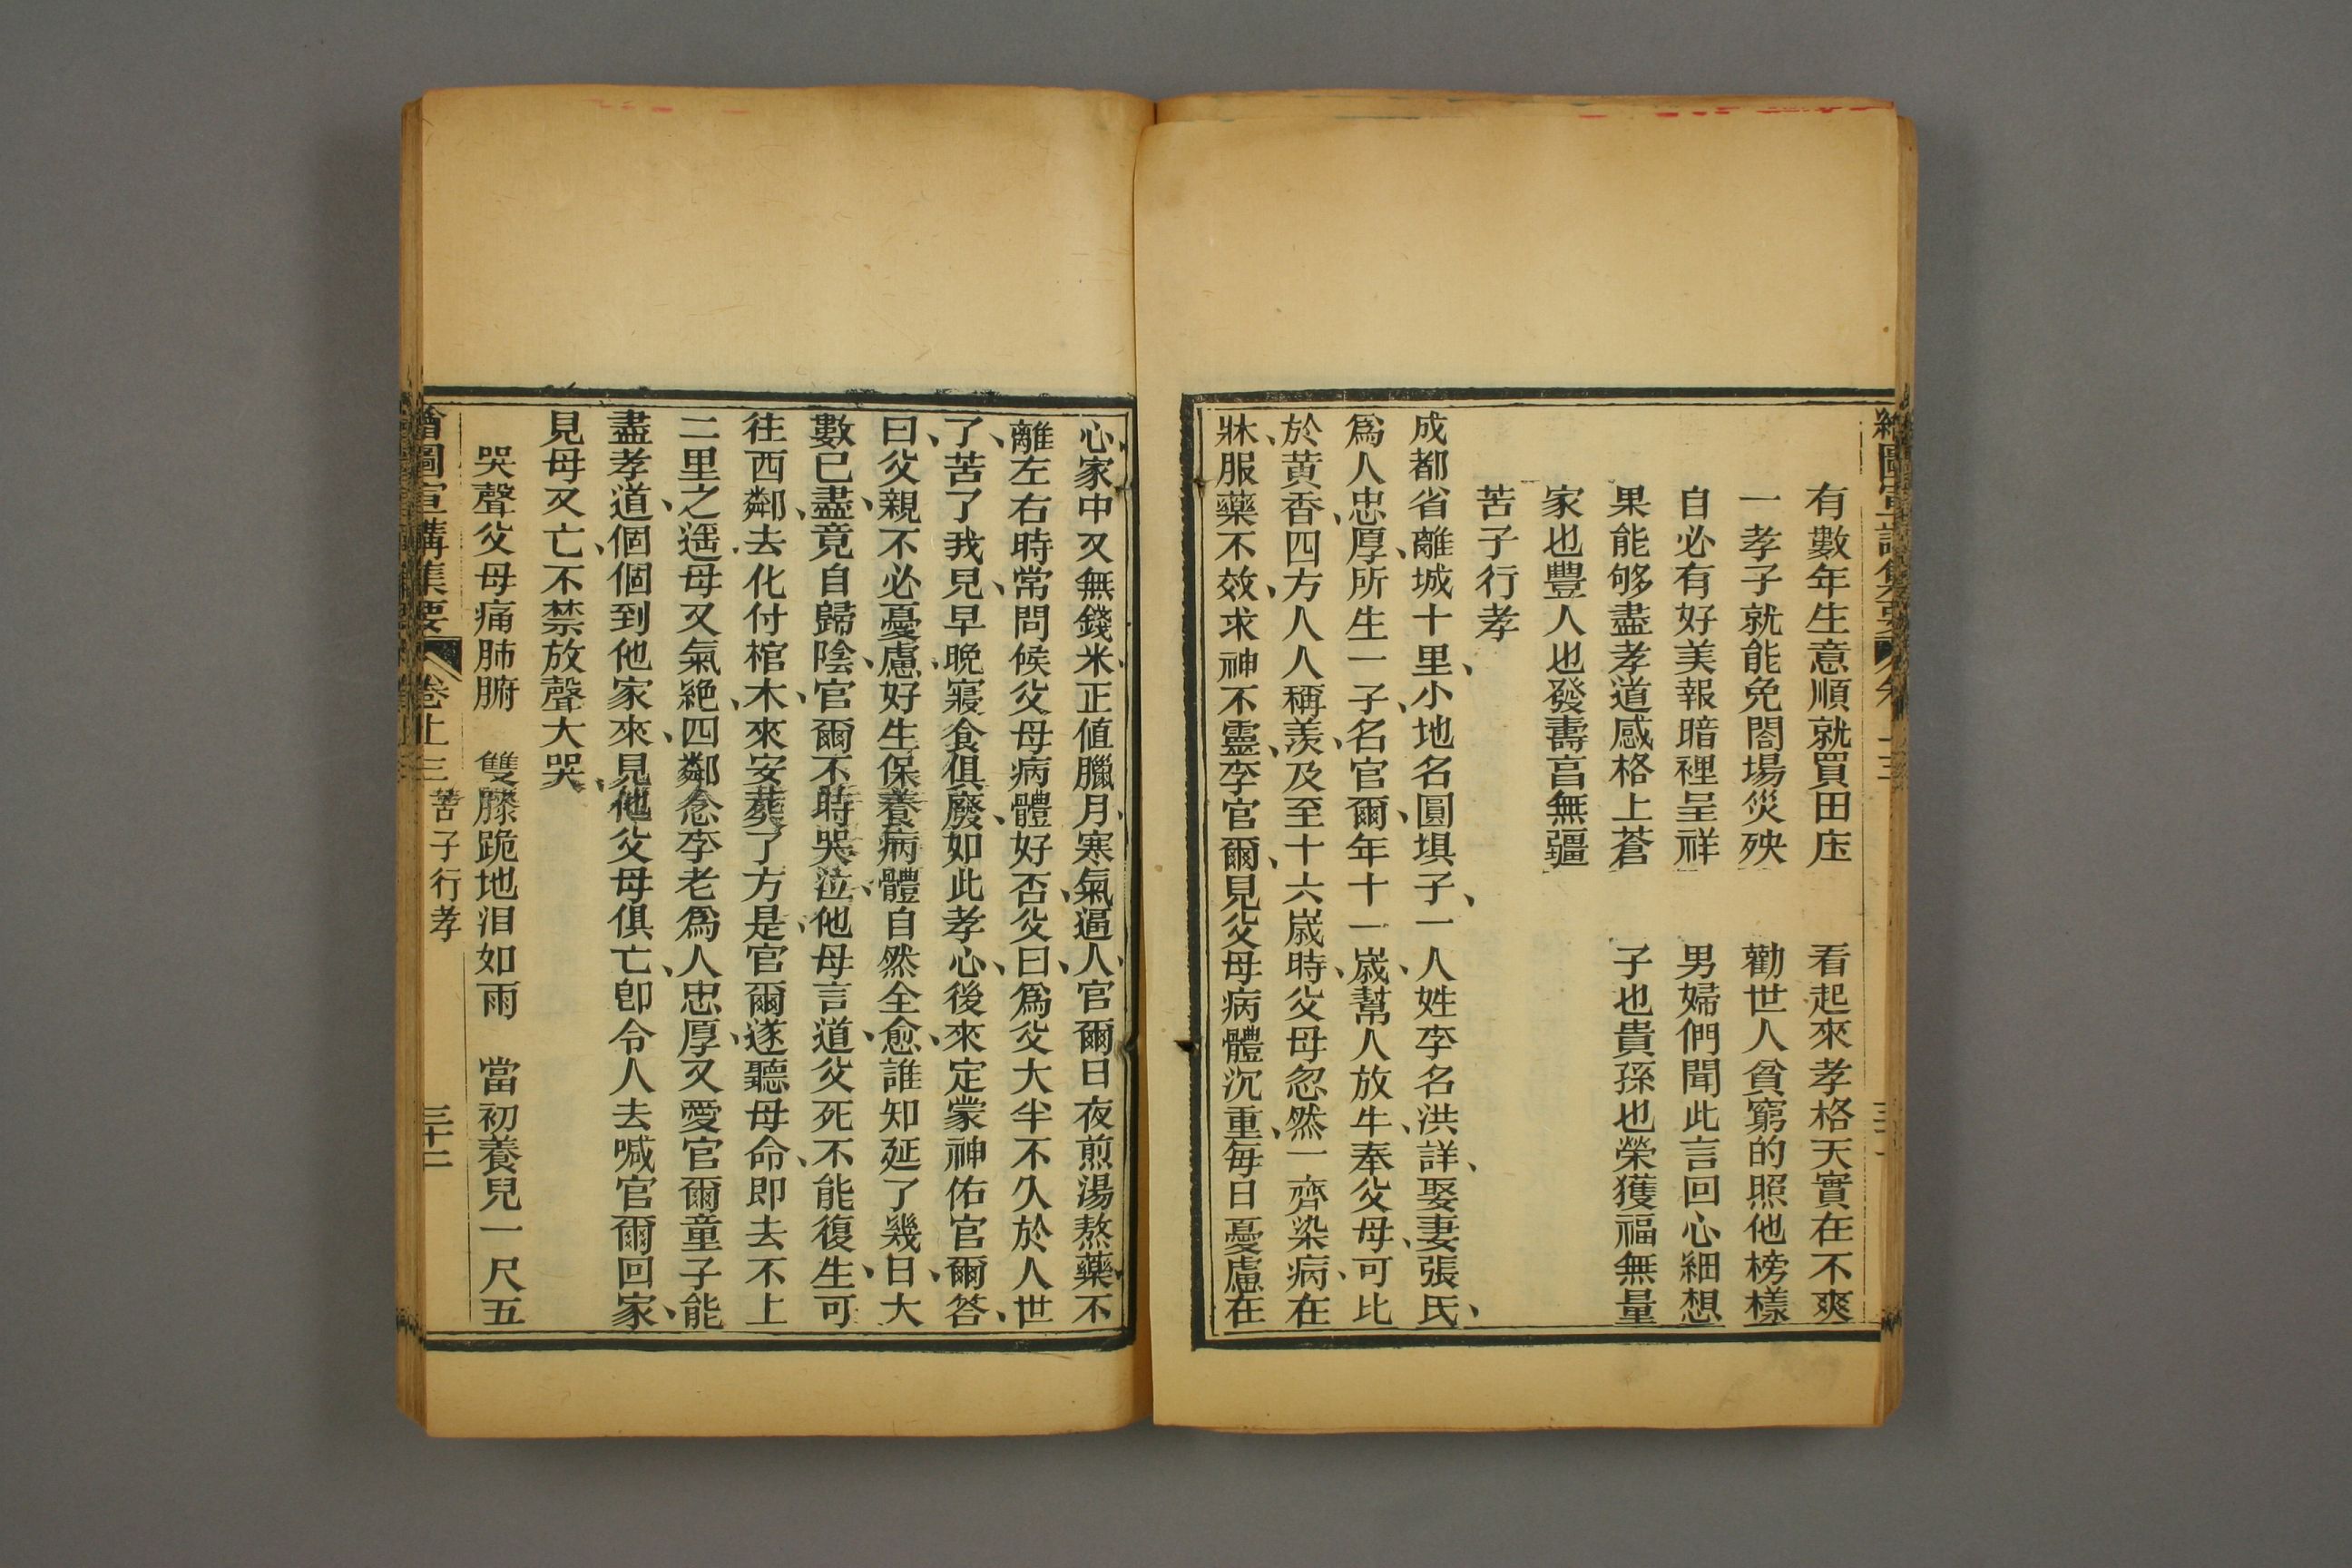 有數年生意順就買田庄　看起來孝格天實在不爽
一孝子就能免閤場災殃　勸世人貧窮的照他榜樣
自必有好美報暗裡呈祥　男婦們聞此言回心細想
果能够盡孝道感格上蒼　子也貴孫也榮獲福無量
家也豐人也發壽亯無疆
苦子行孝
成都省離城十里、小地名圓垻子、一人姓李名洪詳、娶妻張氏、
爲人忠厚、所生一子、名官爾、年十一歲、幫人放牛、奉父母、可比
於黃香、四方人人稱羨、及至十六歲時、父母忽然一齊染病、在
牀、服藥不效、求神不靈、李官爾、見父母病體沉重、每日憂慮在
心、家中又無錢米、正值臘月、寒氣逼人、官爾日夜煎湯熬藥、不
離左右、時常問候父母病體好否、父曰、爲父大半不久於人世
了、苦了我兒、早晚寢食俱廢、如此孝心、後來定蒙神佑、官爾答、
曰、父親不必憂慮、好生保養病體、自然全愈、誰知延了幾日、大
數已盡、竟自歸陰、官爾不時哭泣、他母言道、父死不能復生、可
往西鄰、去化付棺木、來安葬了方是、官爾遂聽母命、即去不上
二里之遥、母又氣絶、四鄰念李老爲人忠厚、又愛官爾童子能
盡孝道、個個到他家來、見他父母俱亡、卽令人去喊官爾回家、
見母又亡、不禁放聲大哭、
哭聲父母痛肺腑　雙膝跪地泪如雨　當初養兒一尺五
繪圖宣講集要　卷十三　苦子行孝　三十二